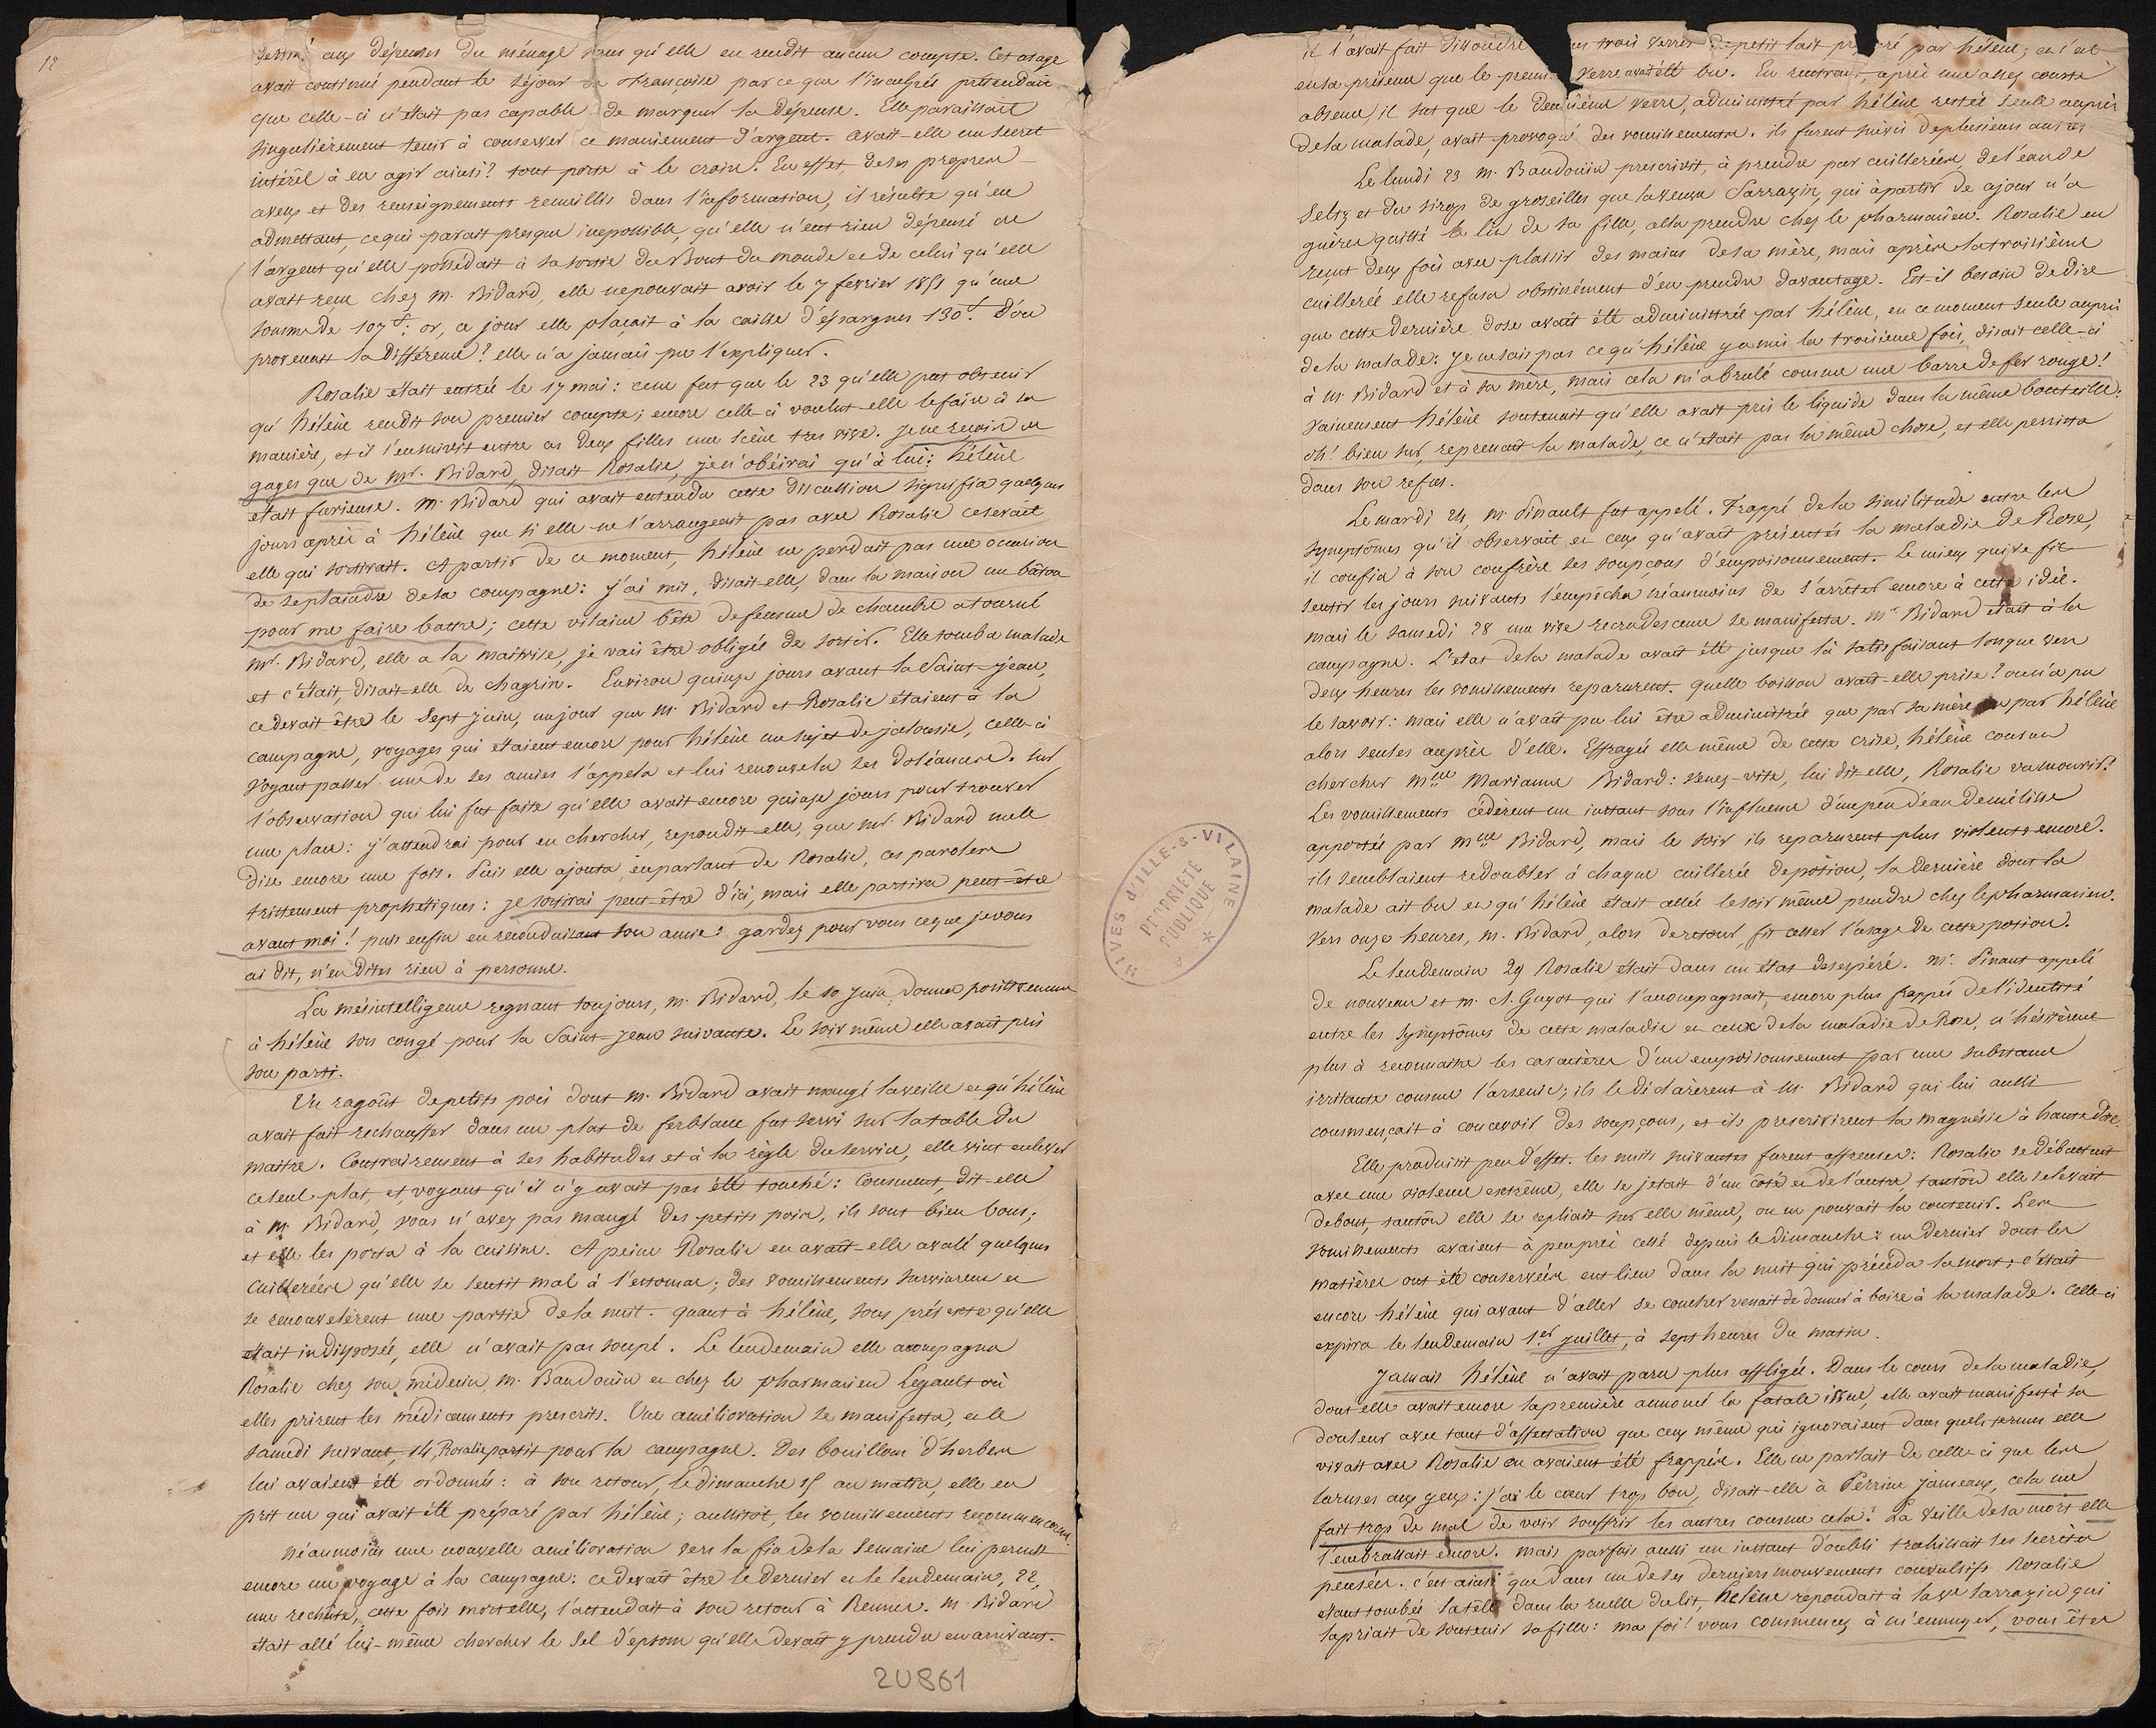 12
aux dépenses du ménage sans qu'elle en rendit aucun compte. Cet usage
avait continué pendant le séjour de Françoise parce que l'inculpée prétendait
que celle-ci n'était pas capable de marquer la dépense. Elle paraissait
singulièrement tenir à conserver ce maniement d'argent. avait-elle un secret
intérêt à en agir ainsi? tout porte à le croire. En effet, de ses propres
aveux et des renseignements recueillis dans l'information, il résulte qu'en
admettant, ce qui parait presque impossible, qu'elle n'eut rien dépensé de
l'argent qu'elle possédait à sa sortie du Bout du monde et de celui qu'elle
avait reçu chez m. Bidard, elle ne pouvait avoir le 7 fevrier 1851 qu'une
somme de 107 f; or, ce jour elle plaçait à la caisse d'épargnes 130 f. D'où
provenait la différence? elle n'a jamais pu l'expliquer.
Rosalie était entrée le 17 mai: ce ne fut que le 23 qu'elle put obtenir
qu'hélène rendit son premier compte; encore celle-ci voulut-elle le faire à sa
manière, et il s'ensuivit entre ces deux filles une scène tres vive. je ne reçois de
gages que de Mr. Bidard, disait Rosalie, je n'obéirai qu'à lui: hélène
était furieuse. M. Bidard qui avait entendu cette discussion signifia quelques
jours après à hélène que si elle ne s'arrangeait pas avec Rosalie ce serait
elle qui sortirait. A partir de ce moment, hélène ne perdait pas une occasion
de se plaindre de sa compagne: j'ai mis, disait-elle, dans la maison un bâton
pour me faire battre; cette vilaine bête de femme de chambre a tourné
Mr. Bidard, elle a la maitrise, je vais être obligée de sortir. Elle tomba malade
et c'était, disait-elle de chagrin. Environ quinze jours avant la Saint-jean,
ce devait être le Sept juin, un jour que M. Bidard et Rosalie étaient à la
campagne, voyages qui étaient encore pour hélène un sujet de jalousie, celle-ci
voyant passer une de ses amies l'appela et lui renouvela ses doléances. sur
l'observation qui lui fut faite qu'elle avait encore quinze jours pour trouver
une place: j'attendrai pour en chercher, repondit-elle, que mr. Bidard me le
dise encore une fois. Puis elle ajouta, en parlant de Rosalie, ces paroles
tristement prophetiques: je sortirai peut-être d'ici, mais elle partira peut-être
avant moi! puis enfin en reconduisant son amie: gardez pour vous ce que je vous
ai dit, n'en dites rien à personne.
La mésintelligence regnant toujours, m. Bidard, le 10 juin, donna positivement
à hélène son congé pour la Saint-jean suivante. Le soir même elle avait pris
son parti.
Un ragoût de petits pois dont M. Bidard avait mangé la veille et qu'hélène
avait fait rechauffer dans un plat de ferblanc fut servi sur la table du
maître. Contrairement à ses habitudes et à la règle du service, elle vint enlever
ce seul plat, et, voyant qu'il n'y avait pas été touché: Comment, dit-elle
à M. Bidard, vous n'avez pas mangé des petits pois, ils sont bien bons;
et elle les porta à la cuisine. A peine Rosalie en avait-elle avalé quelques
cuillerées qu'elle se sentit mal à l'estomac; des vomissements survinrent et
se renouvelèrent une partie de la nuit. quant à hélène, sous prétexte qu'elle
était indisposée, elle n'avait pas soupé. Le lendemain elle accompagna
Rosalie chez son médecin, M. Baudouin et chez le pharmacien Legault où
elles prirent les médicaments prescrits. Une amélioration se manifesta, et le
samedi suivant, 14, Rosalie partit pour la campagne. Des bouillons d'herbes
lui avaient été ordonnés: à son retour, le dimanche 15 au matin, elle en
prit un qui avait été préparé par hélène; aussitôt, les vomissements recommencèrent.
Néanmoins une nouvelle amélioration vers la fin de la semaine lui permit
encore un voyage à la campagne: ce devait être le dernier et le lendemain, 22,
une rechûte, cette fois mortelle, l'attendait à son retour à Rennes. M. Bidard
était allé lui-même chercher le Sel d'epsom qu'elle devait y prendre en arrivant.
2U861
il l'avait fait dissoudre trois verres de petit lait par hélène; et c'est
en sa présence que le premier verre avait été bu. En rentrant, après une assez courte
absence, il sut que le deuxième verre, administré par hélène restée seule auprès
de la malade, avait provoqué des vomissements. ils furent suivis de plusieurs autres
Le lundi 23 M. Baudouin prescrivit, à prendre par cuillerées, de l'eau de
Seltz et du sirop de groseilles que la veuve Sarrazin, qui à partir de ce jour n'a
guère quitté le lit de sa fille, alla prendre chez le pharmacien. Rosalie en
reçut deux fois avec plaisir des mains de sa mère, mais après la troisième
cuillerée elle refusa obstinément d'en prendre davantage. Est-il besoin de dire
que cette dernière dose avait été administrée par hélène, en ce moment seule auprès
de la malade: je ne sais pas ce qu'hélène y a mis la troisième fois, disait celle-ci
à M. Bidard et à sa mère, mais cela m'a brulé comme une barre de fer rouge!
Vainement hélène soutenait qu'elle avait pris le liquide dans la même bouteille:
oh! bien sur, reprenait la malade, ce n'était pas la même chose, et elle persista
dans son refus.
Le mardi 24, M. Pinault fut appelé. Frappé de la similitude entre les
symptômes qu'il observait et ceux qu'avait présentés la maladie de Rose,
il confia à son confrère ses soupçons d'empoisonnement. Le mieux qui se fit
sentir les jours suivants l'empêcha néanmoins de s'arrêter encore à cette idée.
mais le samedi 28 une vive recrudescence se manifesta. Mr. Bidard était à la
campagne. L'état de la malade avait été jusque là satisfaisant lorsque vers
deux heures les vomissements reparurent. quelle boisson avait-elle prise? on n'a pu
le savoir: mais elle n'avait pu lui être administrée que par sa mère ou par hélène
alors seules auprès d'elle. Effrayée elle même de cette crise, hélène courut
chercher Mlle Marianne Bidard: venez-vite, lui dit-elle, Rosalie va mourir!
Les vomissements cédèrent un instant sous l'influence d'un peu d'eau de mélisse
apportée par Mlle Bidard, mais le soir ils reparurent plus violents encore.
ils semblaient redoubler à chaque cuillerée de potion, la dernière dont la
malade ait bu et qu'hélène était allée le soir même prendre chez le pharmacien.
Vers onze heures, M. Bidard, alors de retour, fit cesser l'usage de cette potion.
Le lendemain 29 Rosalie était dans un état desespéré. Mr. Pinaut appelé
de nouveau et M. A. Guyot qui l'accompagnait, encore plus frappés de l'identité
entre les symptômes de cette maladie et ceux de la maladie de Rose, n'hésitèrent
plus à reconnaitre les caractères d'un empoisonnement par une substance
irritante comme l'arsenic; ils le déclarèrent à M. Bidard qui lui aussi
commençait à concevoir des soupçons, et ils prescrivirent la magnésie à haute dose.
Elle produisit peu d'effet. les nuits suivantes furent affreuses: Rosalie se débattant
avec une violence extrême, elle se jetait d'un coté et de l'autre, tantôt elle se levait
debout, tantôt elle se repliait sur elle même, on ne pouvait la contenir. Les
vomissements avaient à peu près cessé depuis le dimanche: un dernier dont les
matières ont été conservées eut lieu dans la nuit qui précéda la mort; c'était
encore hélène qui avant d'aller se coucher venait de donner à boire à la malade. Celle-ci
expira le lendemain 1er juillet, à sept heures du matin.
Jamais hélène n'avait paru plus affligée. Dans le cours de la maladie,
dont elle avait encore la première annoncé la fatale issue, elle avait manifesté sa
douleur avec tant d'affectation que ceux même qui ignoraient dans quels termes elle
vivait avec Rosalie en avaient été frappés. Elle ne parlait de celle-ci que les
larmes aux yeux: j'ai le cœur trop bon, disait-elle à Perrine Jameaux, cela me
fait trop de mal de voir souffrir les autres comme cela! La veille de sa mort elle
l'embrassait encore. Mais parfois aussi un instant d'oubli trahissait ses secrètes
pensées. c'est ainsi que dans un de ses derniers mouvements convulsifs Rosalie
étant tombée la tête dans la ruelle du lit, helène repondait à la ve Sarrazin qui
la priait de soutenir sa fille: ma foi! vous commencez à m'ennuyer, vous êtes
ARCHIVES d'ILLE-&-VILAINE
PROPRIÉTÉ
PUBLIQUE